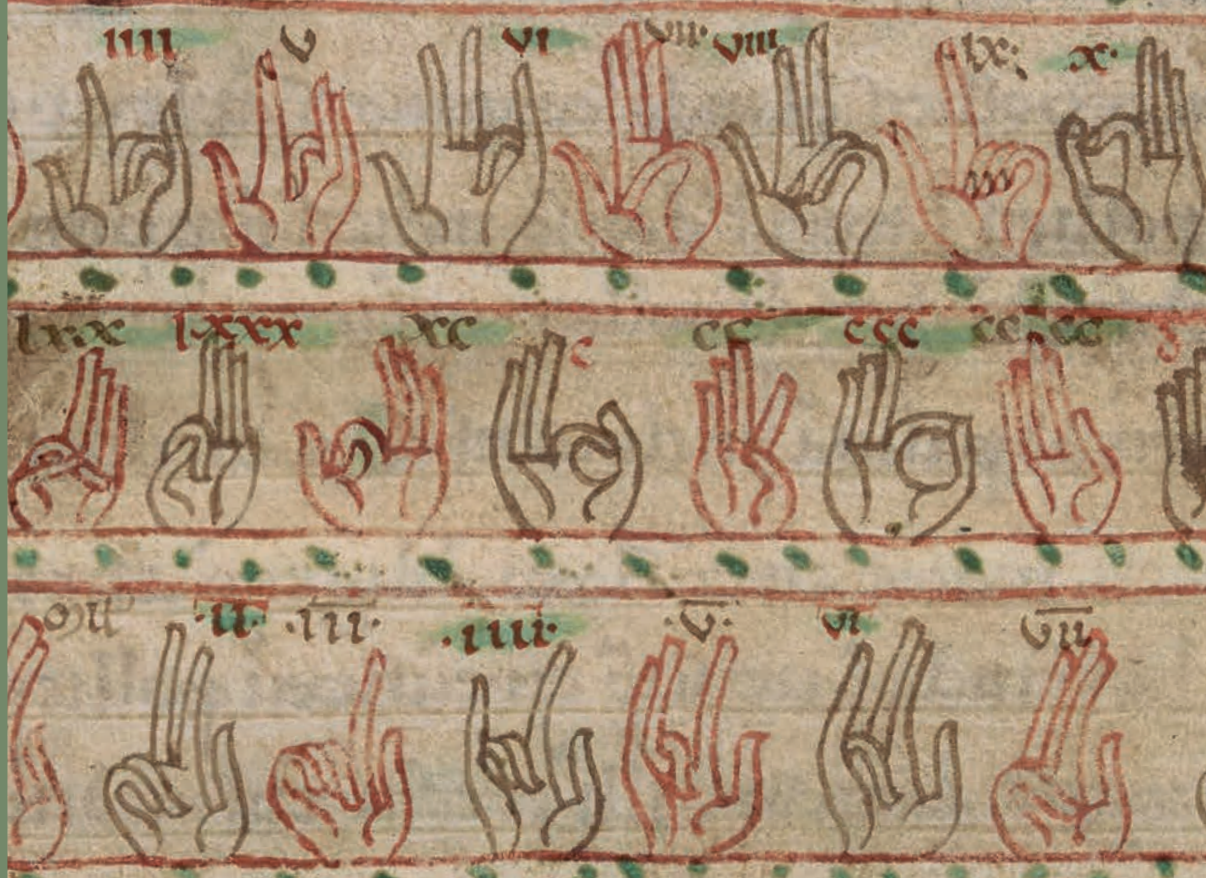 iiii v vi vii· viii ix: x·
lxx lxxx xc c cc ccc cccc
·ii· ·iii· ·iiii· ·v· vi vii